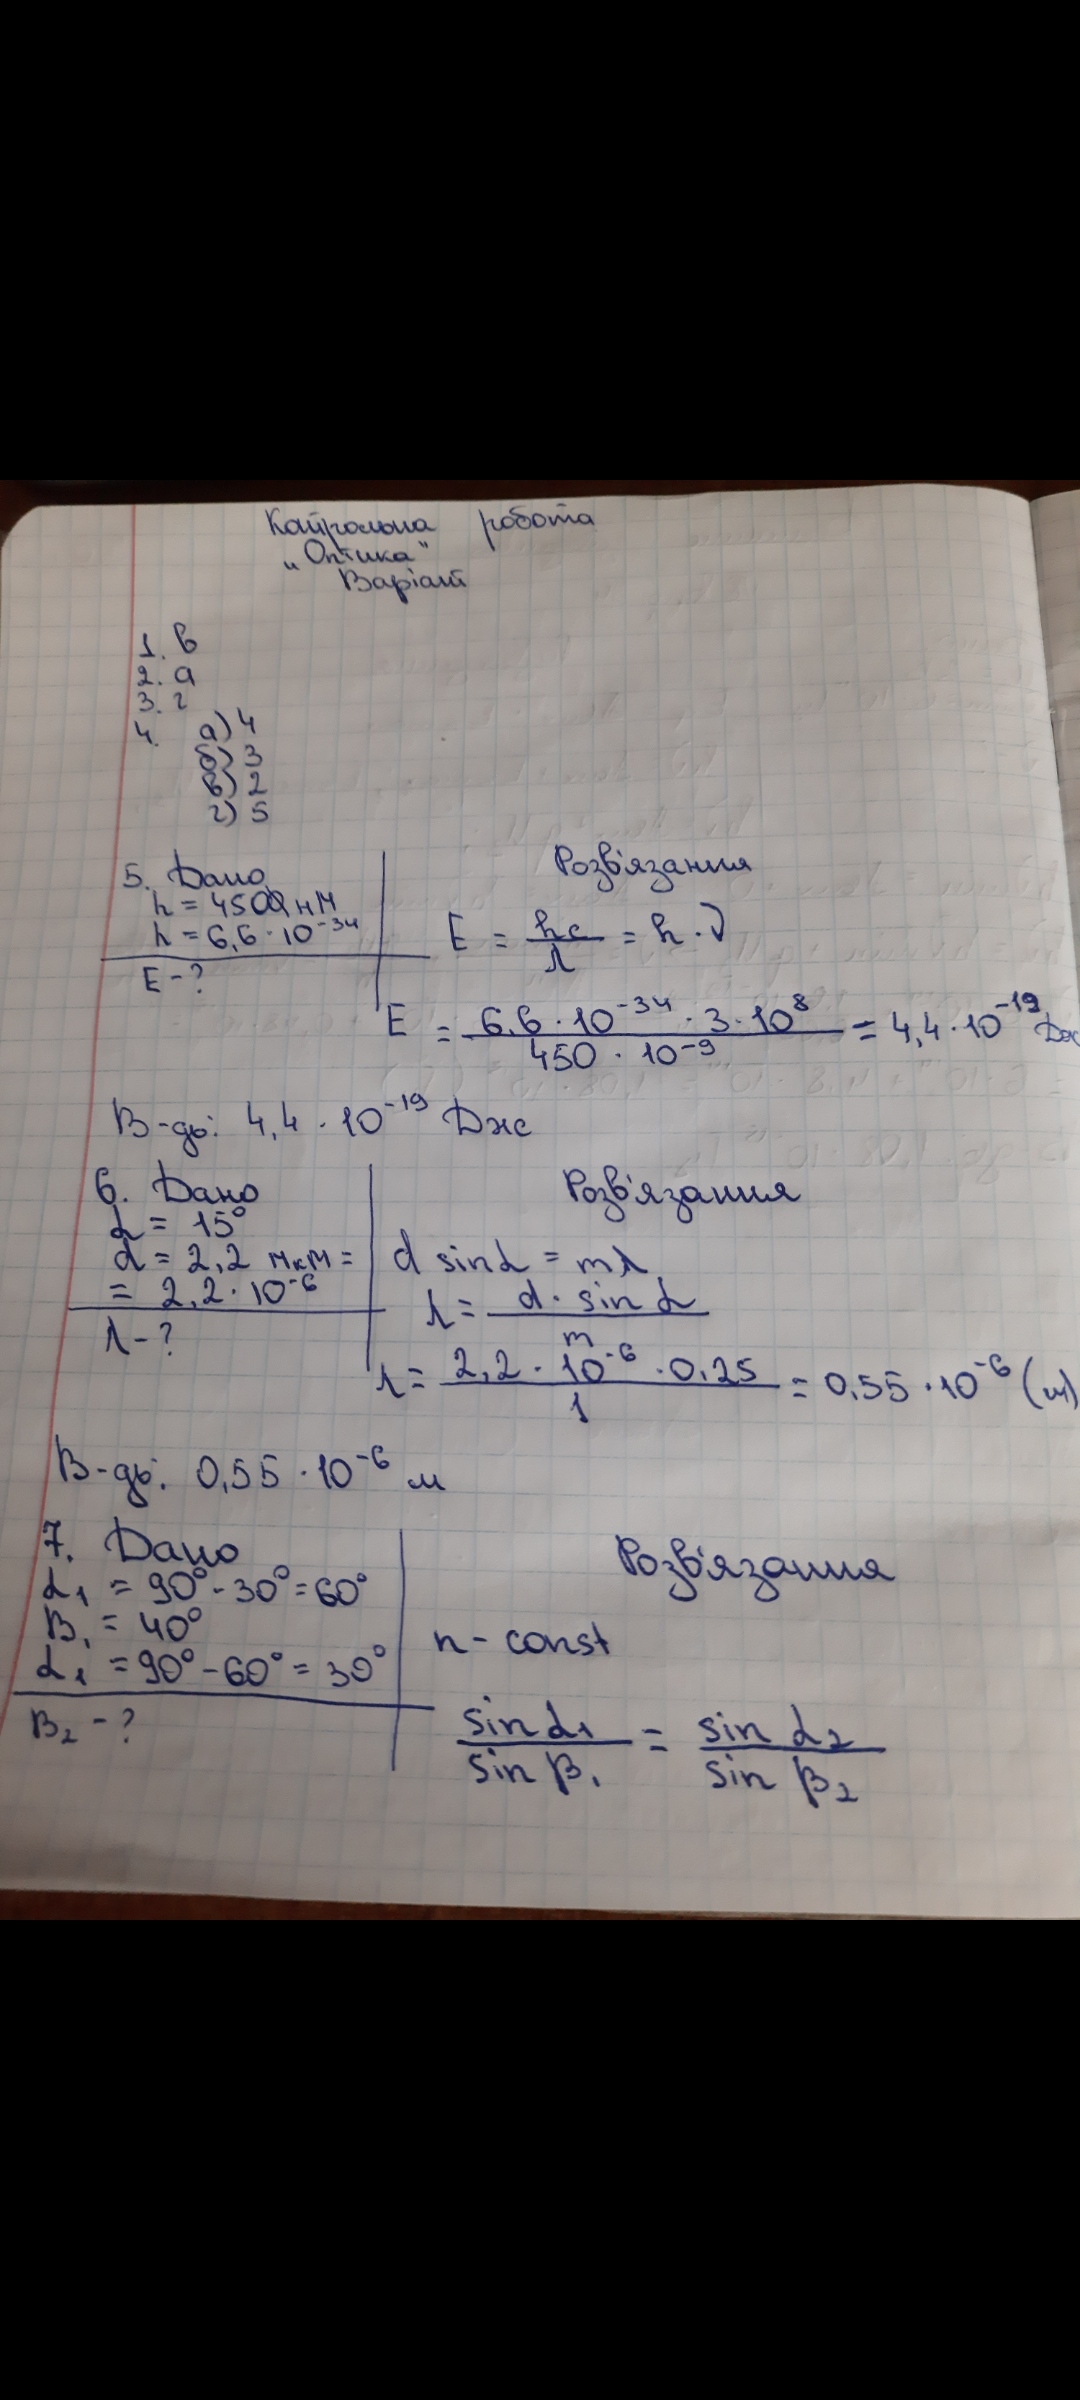 Контрольна робота
"Оптика"
Варіант
1. в
2. а
3. г
4. а) 4
б) 3
в) 2
г) 5
5. Дано
λ = 450 нм
h = 6,6 · 10⁻³⁴
E - ?
Розв'язання
E = hc/λ = h · ν
E = 6,6 · 10⁻³⁴ · 3 · 10⁸ / 450 · 10⁻⁹ = 4,4 · 10⁻¹⁹ Дж
В-дь: 4,4 · 10⁻¹⁹ Дж
6. Дано
α = 15°
d = 2,2 мкм =
= 2,2 · 10⁻⁶
λ - ?
Розв'язання
d sin α = mλ
λ = d · sin α / m
λ = 2,2 · 10⁻⁶ · 0,25 / 1 = 0,55 · 10⁻⁶ (м)
В-дь: 0,55 · 10⁻⁶ м
7. Дано
α₁ = 90° - 30° = 60°
β₁ = 40°
α₁ = 90° - 60° = 30°
β₂ - ?
Розв'язання
n - const
sin α₁ / sin β₁ = sin α₂ / sin β₂